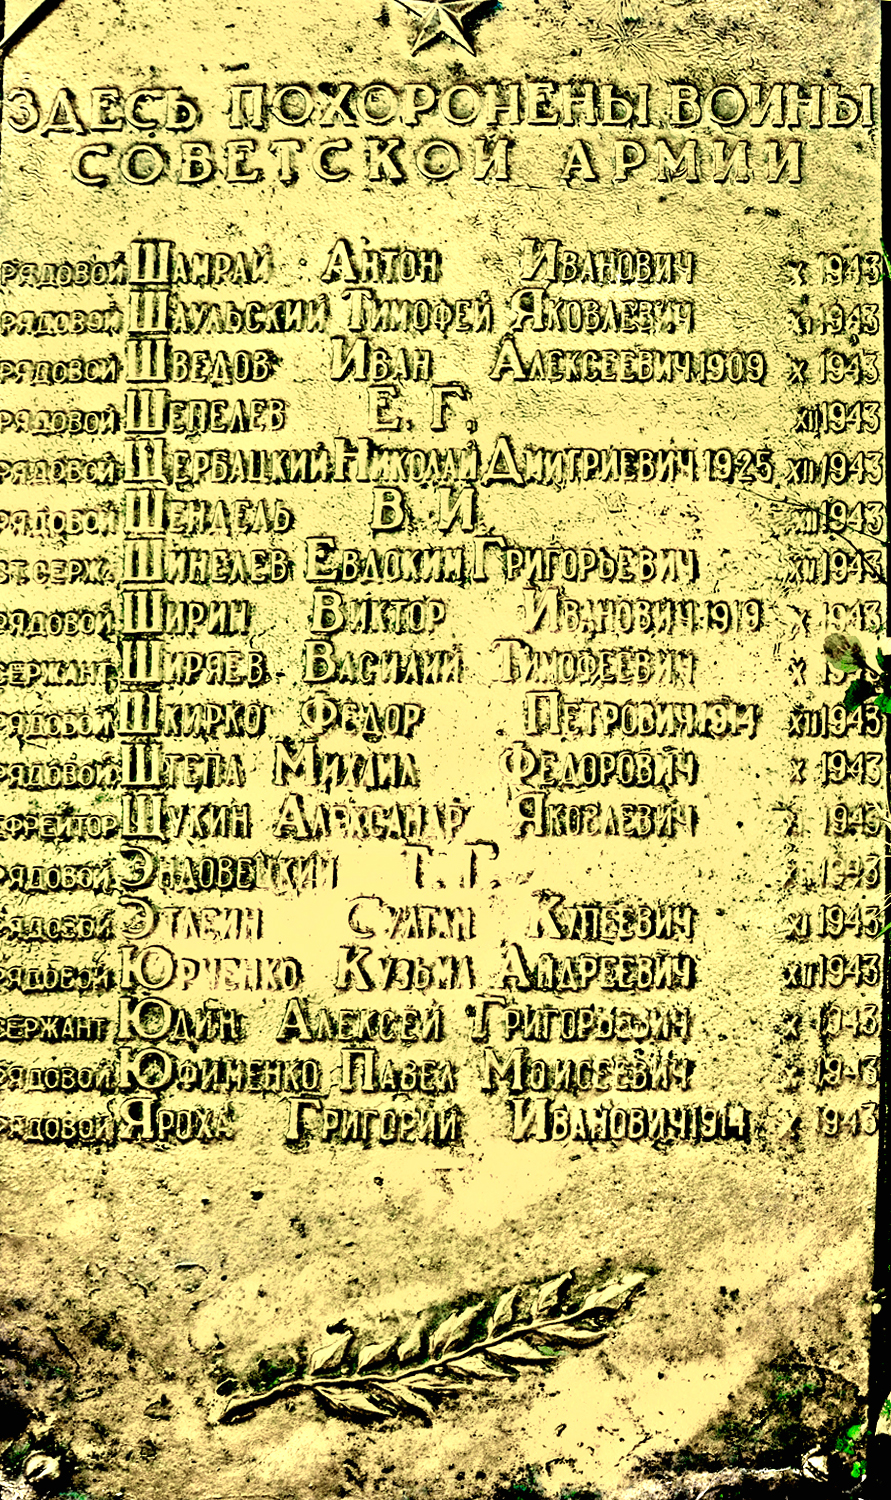 ЗДЕСЬ ПОХОРОНЕНЫ ВОИНЫ
СОВЕТСКОЙ АРМИИ
РЯДОВОЙ ШАМРАЙ АНТОН ИВАНОВИЧ X 1943
РЯДОВОЙ ШАУЛЬСКИЙ ТИМОФЕЙ ЯКОВЛЕВИЧ XI 1943
РЯДОВОЙ ШВЕДОВ ИВАН АЛЕКСЕЕВИЧ 1909 X 1943
РЯДОВОЙ ШЕПЕЛЕВ Е. Г. XII 1943
РЯДОВОЙ ЩЕРБАЦКИЙ НИКОЛАЙ ДМИТРИЕВИЧ 1925 XII 1943
РЯДОВОЙ ШЕНДЕЛЬ В. И XII 1943
СТ. СЕРЖ. ШИНЕЛЕВ ЕВДОКИМ ГРИГОРЬЕВИЧ XII 1943
РЯДОВОЙ ШИРИН ВИКТОР ИВАНОВИЧ 1919 X 1943
СЕРЖАНТ ШИРЯЕВ ВАСИЛИЙ ТИМОФЕЕВИЧ X
РЯДОВОЙ ШКИРКО ФЕДОР ПЕТРОВИЧ 1914 XII 1943
РЯДОВОЙ ШТЕПА МИХАИЛ ФЕДОРОВИЧ X 1943
ЕФРЕЙТОР ЩУКИН АЛЕКСАНДР ЯКОВЛЕВИЧ 1943
РЯДОВОЙ ЭНДОВЕЦКИЙ Т. Г. 1943
РЯДОВОЙ СУЛТАН КУПЕЕВИЧ XI 1943
РЯДОВОЙ ЮРЧЕНКО КУЗЬМА АНДРЕЕВИЧ XII 1943
СЕРЖАНТ ЮДИН АЛЕКСЕЙ ГРИГОРЬЕВИЧ X 1943
РЯДОВОЙ ЮФИМЕНКО ПАВЕЛ МОИСЕЕВИЧ 1943
РЯДОВОЙ ЯРОХА ГРИГОРИЙ ИВАНОВИЧ 1914 X 1943